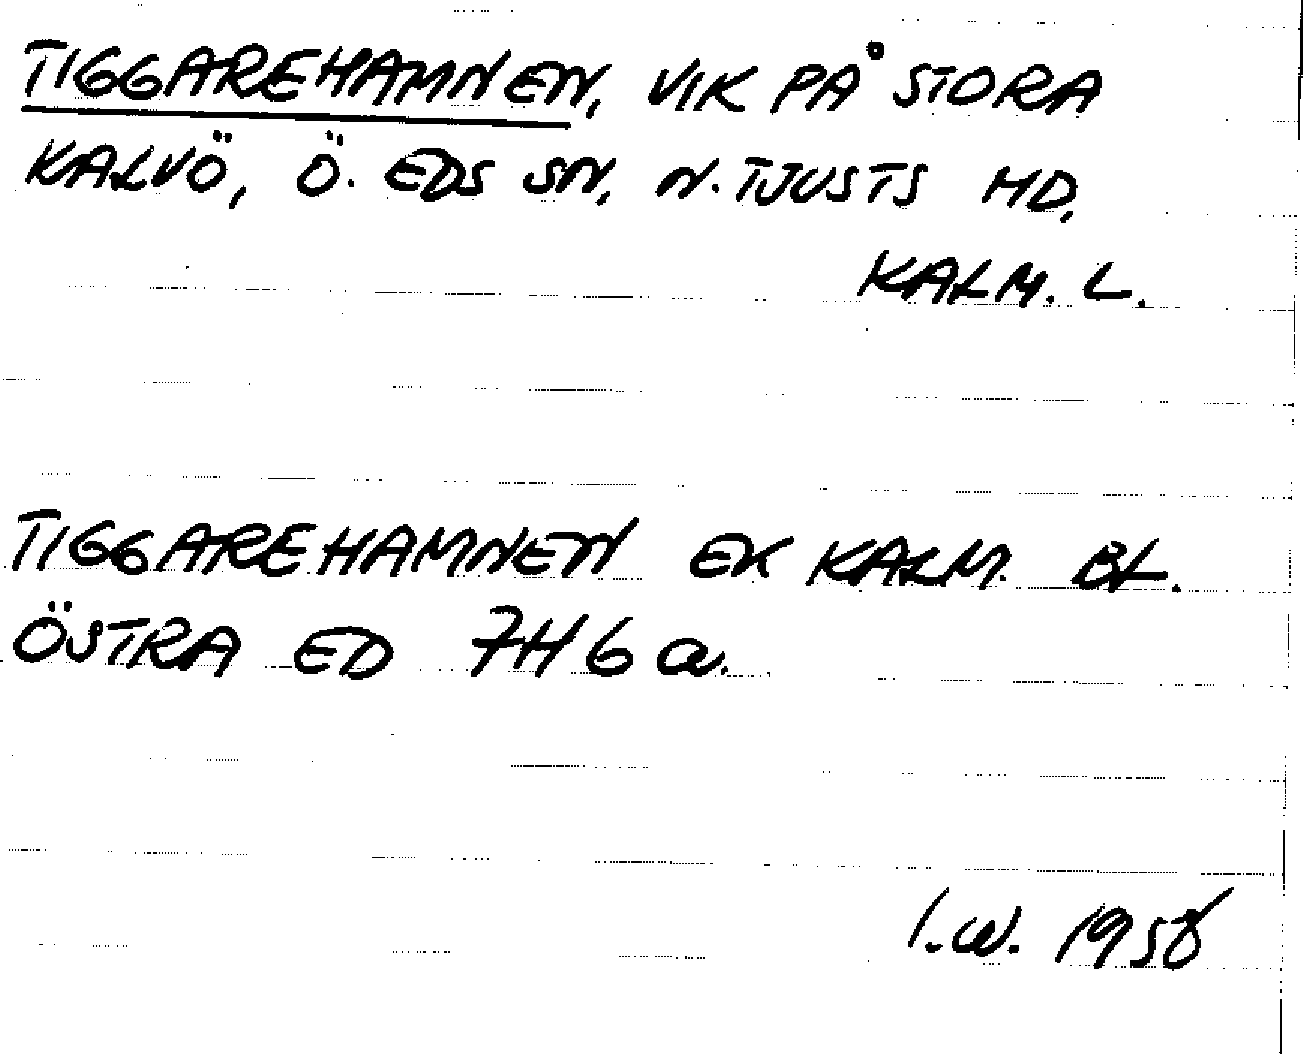 TIGGAREHAMNEN, VIK PÅ STORA
KALVÖ, Ö. EDS SN, N. TJUSTS HD,
KALM. L.
TIGGAREHAMNEN EK KALM. BL.
ÖSTRA ED 7H6a.
I.W. 1958